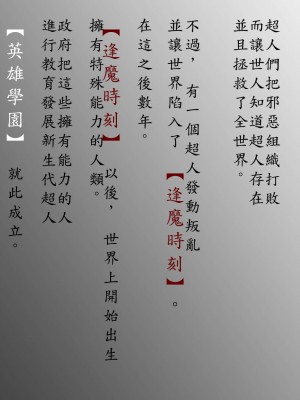 超人們把邪惡組織打敗
而讓世人知道超人存在
並且拯救了全世界。
不過，有一個超人發動叛亂
並讓世界陷入了【逢魔時刻】。
在這之後數年。
【逢魔時刻】以後，世界上開始出生
擁有特殊能力的人類。
政府把這些擁有能力的人
進行教育發展新生代超人
【英雄學園】就此成立。